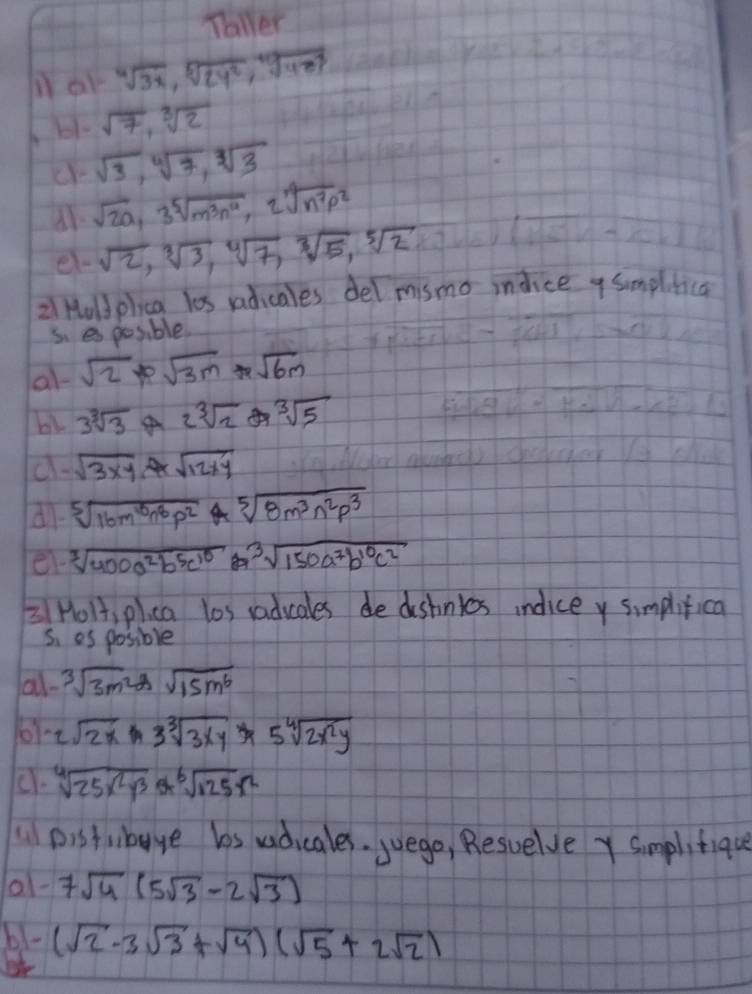 Taller
1) a)- ⁴√3x, ⁵√2y²,
b)- √7, ³√2
c)- √3, ⁴√7, ³√3
d)- √2a, 3⁵√m³n⁴, 2⁴√n³p²
e)- √2, ³√3, ⁴√7, ³√5, ⁵√2
2) Multplica los radicales del mismo indice y simplifica
si es posible
a)- √2 * √3m * √6m
b) 3³√3 * 2³√2 * ³√5
c)- √3xy * √12xy
d)- ⁵√16m⁶n⁸p² * ⁵√8m³n²p³
e)- ³√400a²b⁵c¹⁰ * ³√150a⁷b¹⁰c²
3) Moltiplica los radicales de distintos indice y simplifica
si es posible
a)- ³√3m² * √15m⁶
b)- 2√2x * 3³√3xy * 5⁴√2x²y
c)- ⁴√25x²y³ * ⁶√125x²
4) Distribuye los radicales. juego, Resuelve y simplifique
a)- 7√4 (5√3 - 2√3)
b)- (√2 - 3√3 + √4) (√5 + 2√2)